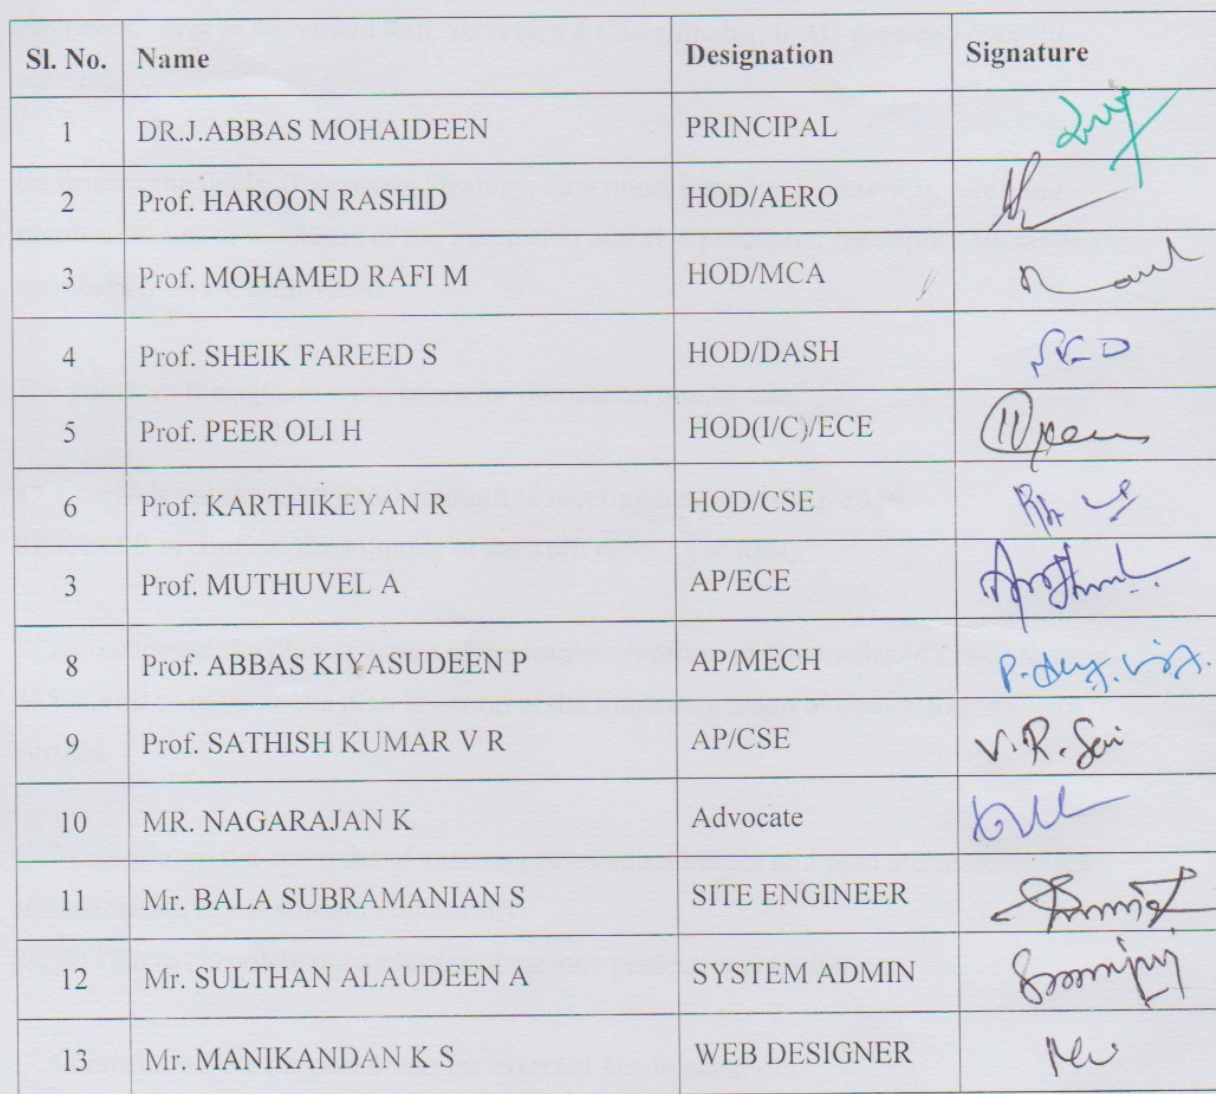 Sl. No. Name Designation Signature
1 DR.J.ABBAS MOHAIDEEN PRINCIPAL
2 Prof. HAROON RASHID HOD/AERO
3 Prof. MOHAMED RAFI M HOD/MCA
4 Prof. SHEIK FAREED S HOD/DASH
5 Prof. PEER OLI H HOD(I/C)/ECE
6 Prof. KARTHIKEYAN R HOD/CSE
3 Prof. MUTHUVEL A AP/ECE
8 Prof. ABBAS KIYASUDEEN P AP/MECH
9 Prof. SATHISH KUMAR V R AP/CSE V.R.Sai
10 MR. NAGARAJAN K Advocate
11 Mr. BALA SUBRAMANIAN S SITE ENGINEER
12 Mr. SULTHAN ALAUDEEN A SYSTEM ADMIN
13 Mr. MANIKANDAN K S WEB DESIGNER